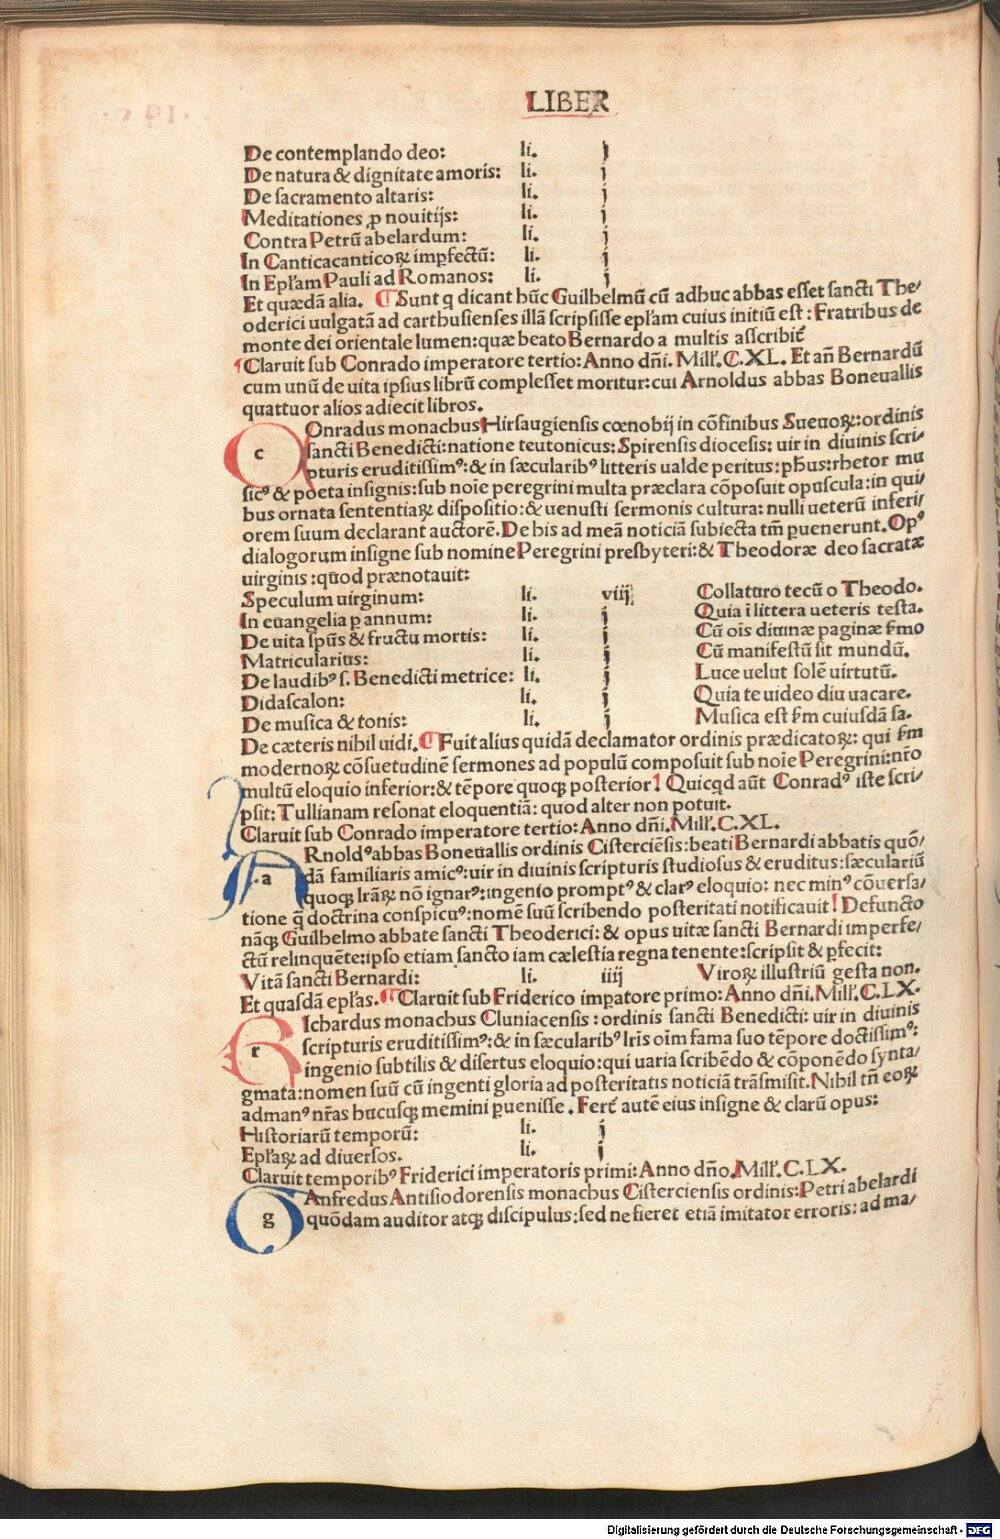 LIBER
De contemplando deo: li. j
De natura & dignitate amoris: li. j
De sacramento altaris: li. j
Meditationes ꝓ nouitijs: li. j
Contra Petrū abelardum: li. j
In Canticacanticoꝝ imꝑfectū: li. j
In Epl'am Pauli ad Romanos: li. j
Et quædā alia. ¶ Sunt q dicant hūc Guilhelmū cū adhuc abbas esset sancti The/
oderici uulgatā ad carthusienses illā scripsisse epl'am cuius initiū est: Fratribus de
monte dei orientale lumen: quæ beato Bernardo a multis asscribit̉
¶ Claruit sub Conrado imperatore tertio: Anno dñi. Mill'. C. XL. Et añ Bernardū
cum unū de uita ipsius librū complesset moritur: cui Arnoldus abbas Boneuallis
quattuor alios adiecit libros.
c Onradus monachus Hirsaugiensis cœnobij in cōfinibus Sueuoꝝ: ordinis
sancti Benedicti: natione teutonicus: Spirensis diocesis: uir in diuinis scri/
pturis eruditissimꝰ: & in sæcularibꝰ litteris ualde peritus: ph̄us: rhetor mu
sicꝰ & poeta insignis: sub noīe peregrini multa præclara cōposuit opuscula: in qui/
bus ornata sententiaꝝ dispositio: & uenusti sermonis cultura: nulli ueterū inferi/
orem suum declarant auctorē. De his ad meā noticiā subiecta tm̄ ꝑuenerunt. Opꝰ
dialogorum insigne sub nomine Peregrini presbyteri: & Theodoræ deo sacratæ
uirginis: quod prænotauit:
Speculum uirginum: li. viij Collaturo tecū o Theodo.
In euangelia ꝑ annum: li. j Quia ī littera ueteris testa.
De uita spūs & fructu mortis: li. j Cū oīs diuinæ paginæ ẜmo
Matricularius: li. j Cū manifestū sit mundū.
De laudibꝰ s. Benedicti metrice: li. j Luce uelut solē uirtutū.
Didascalon: li. j Quia te uideo diu uacare.
De musica & tonis: li. j Musica est ẜm cuiusdā sa.
De cæteris nihil uidi. ¶ Fuit alius quidā declamator ordinis prædicatoꝝ: qui ẜm
modernoꝝ cōsuetudinē sermones ad populū composuit sub noīe Peregrini: nr̄o
multū eloquio inferior: & tēpore quoqꝫ posterior! Quicqd aūt Conradꝰ iste scri/
psit: Tullianam resonat eloquentiā: quod alter non potuit.
Claruit sub Conrado imperatore tertio: Anno dñi. Mill'. C. XL.
a Rnoldꝰ abbas Boneuallis ordinis Cisterciēsis: beati Bernardi abbatis quō/
dā familiaris amicꝰ: uir in diuinis scripturis studiosus & eruditus: sæculariū
quoqꝫ lr̄aꝝ nō ignarꝰ: ingenio promptꝰ & clarꝰ eloquio: nec minꝰ cōuersa/
tione q̄ doctrina conspicuꝰ: nomē suū scribendo posteritati notificauit! Defuncto
nāqꝫ Guilhelmo abbate sancti Theoderici: & opus uitæ sancti Bernardi imperfe/
ctū relinquēte: ipso etiam sancto iam cælestia regna tenente: scripsit & ꝑfecit:
Vitā sancti Bernardi: li. iiij Viroꝝ illustriū gesta non.
Et quasdā epl'as. ¶ Claruit sub Friderico imꝑatore primo: Anno dñi. Mill'. C. LX.
r Ichardus monachus Cluniacensis: ordinis sancti Benedicti: uir in diuinis
scripturis eruditissimꝰ: & in sæcularibꝰ lris oīm fama suo tēpore doctissimꝰ:
ingenio subtilis & disertus eloquio: qui uaria scribēdo & cōponēdo synta/
gmata: nomen suū cū ingenti gloria ad posteritatis noticiā trāsmisit. Nihil tñ eoꝝ
ad manꝰ nr̄as hucusqꝫ memini ꝑuenisse. Fert̉ autē eius insigne & clarū opus:
Historiarū temporū: li. j
Epl'aꝝ ad diuersos. li. j
Claruit temporibꝰ Friderici imperatoris primi: Anno dño. Mill'. C. LX.
g Anfredus Antisiodorensis monachus Cisterciensis ordinis: Petri abelardi
quōdam auditor atqꝫ discipulus: sed ne fieret etiā imitator erroris: ad ma/
Digitalisierung gefördert durch die Deutsche Forschungsgemeinschaft - DFG